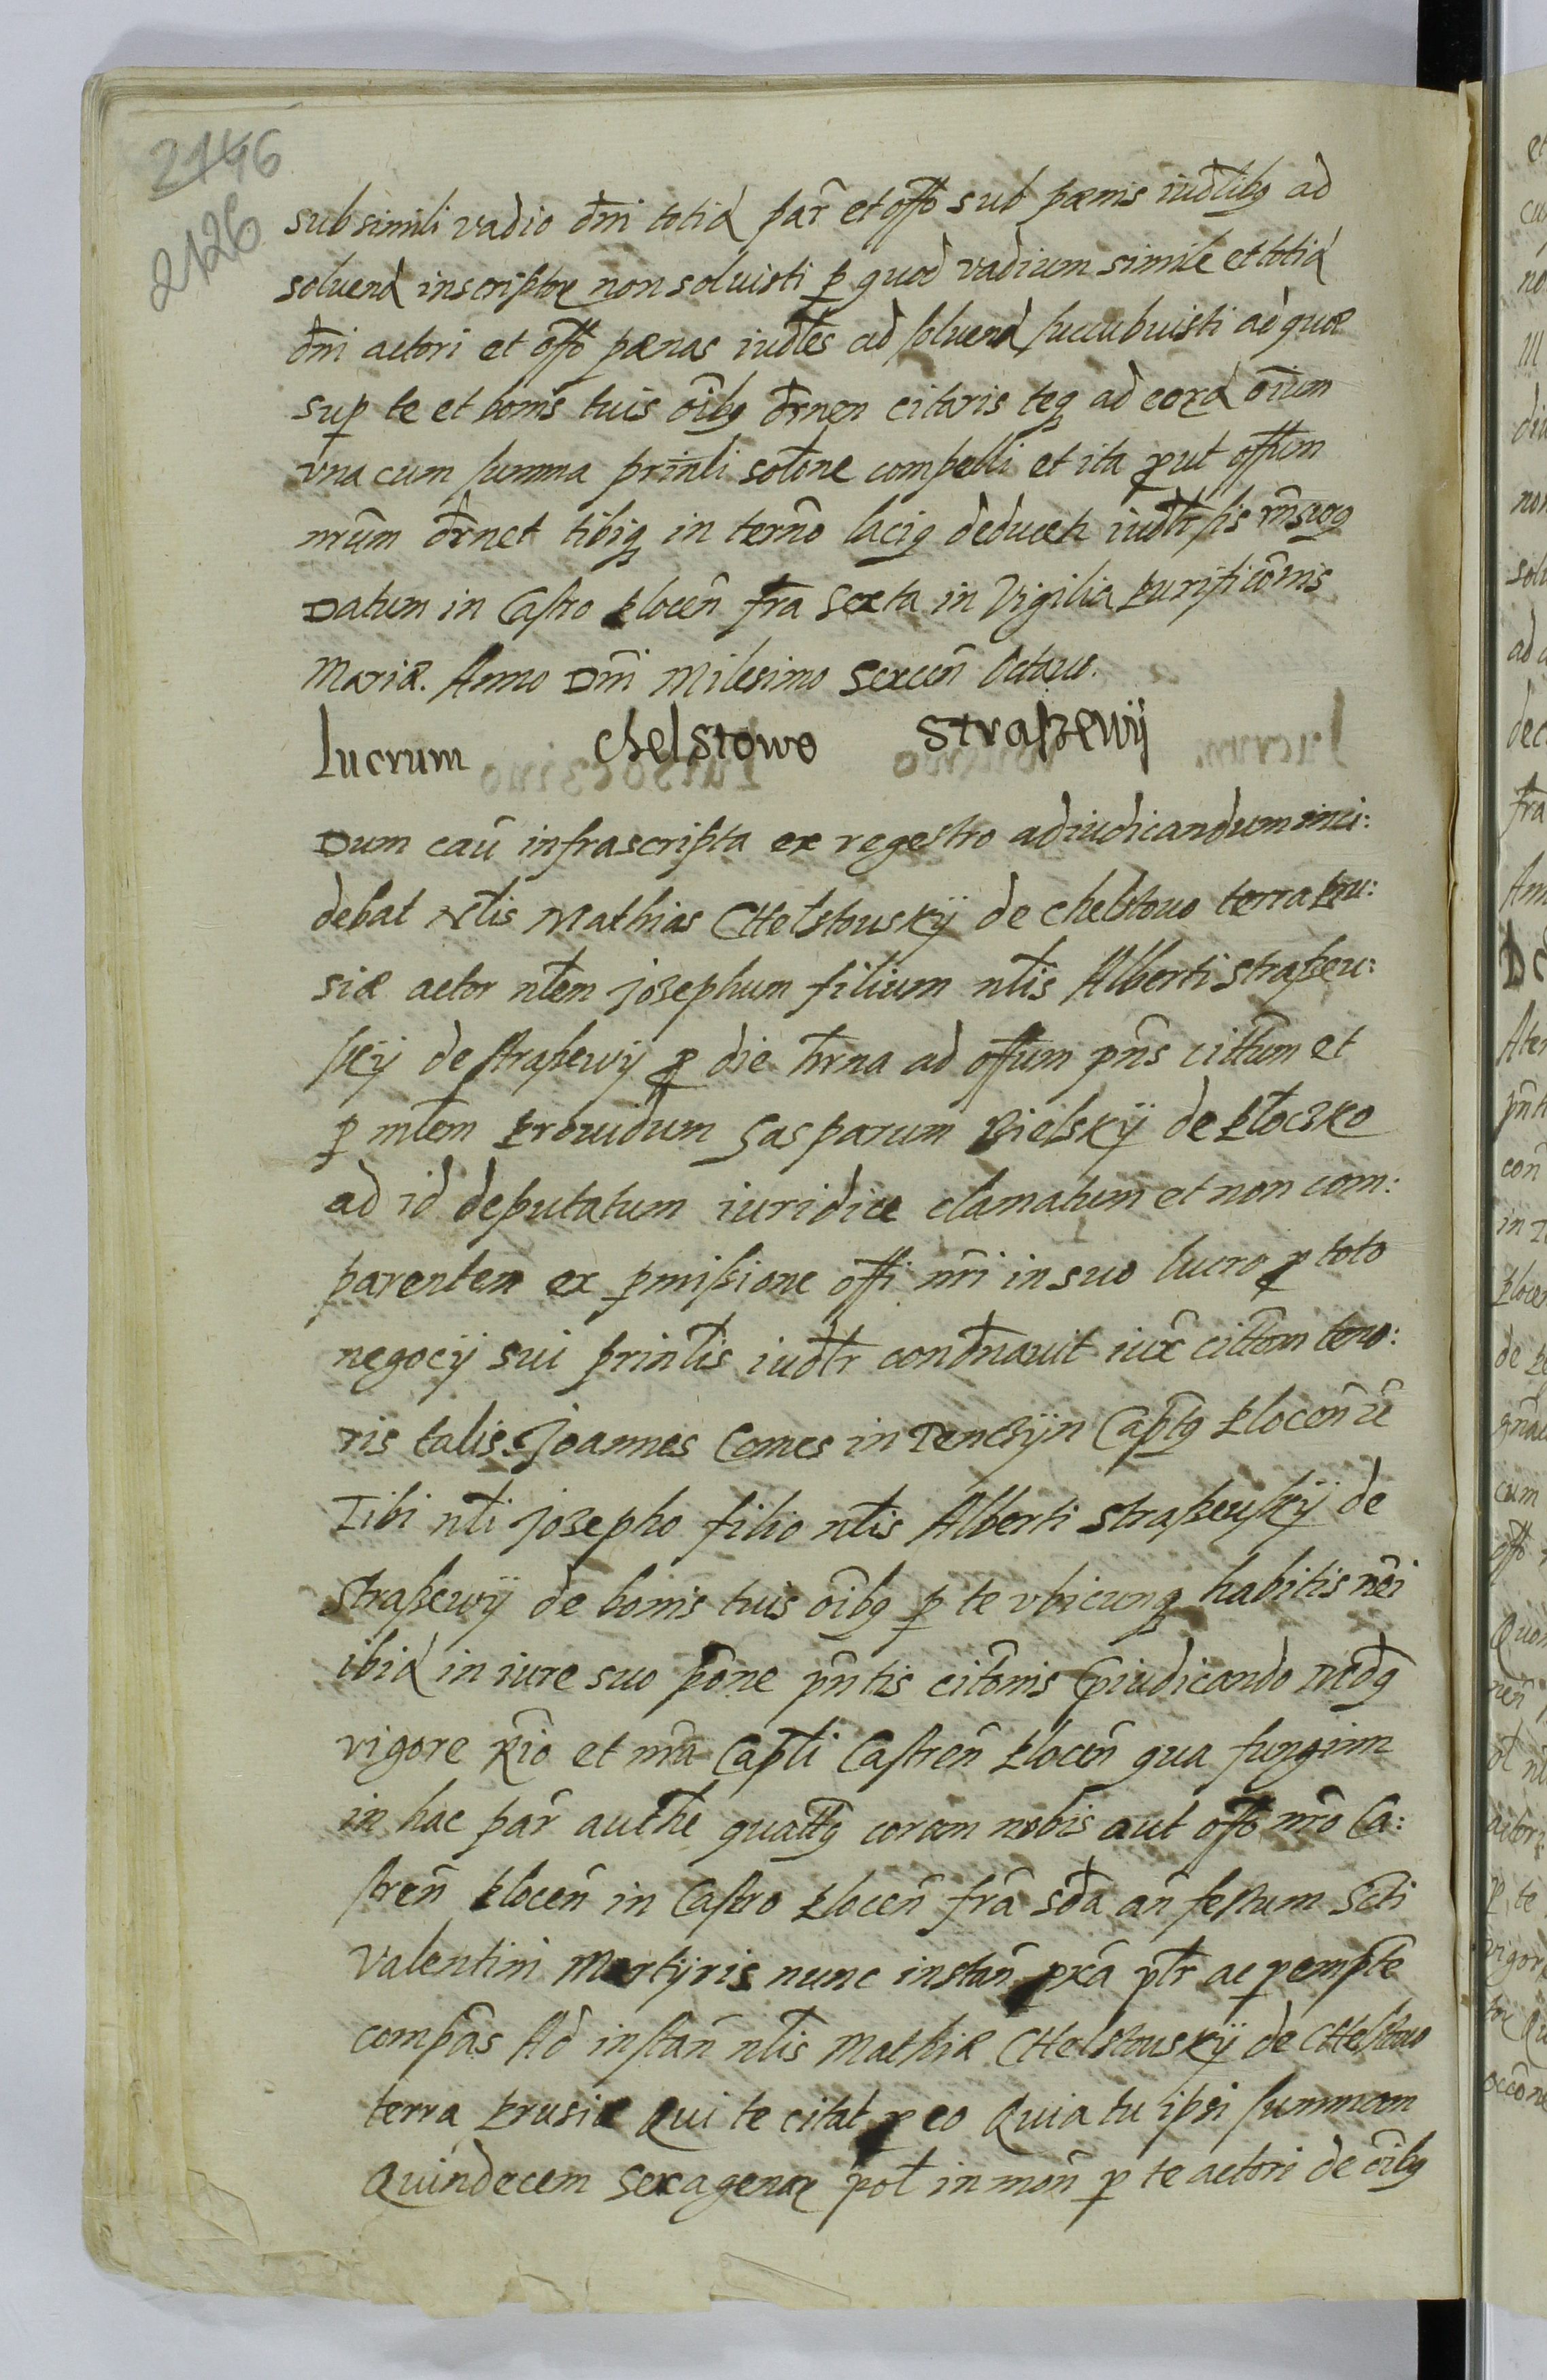 2146
2126
sub simili vadio dni totid par et offo sub pœnis iudlibq ad
soluend inscriptæ non soluisti p quod vadium simile et totid
dni actori et offo pœnas iudles ad soluend succubuisti ad quæ
sup te et bonis tuis oibq drnen citaris teq ad eord oium
vna cum summa prinli solone compelli et ita put offium
nrum drnet tibiq in terno laciq deducen iudlr sis rnsurq
Datum in Castro Plocen fra Sexta in Vigilia Purificonis
Mariæ. Anno Dni Milesimo Sexcen Octauo.
Lucrum Chelstowo Straszewÿ
Dum cau infrascripta ex regestro adiudicandum inci:
debat Nlis Mathias CHelstouskÿ de Chelstouo terra Pru:
siæ actor nlem Jozephum filium nlis Alberti Straszeu:
skÿ de Straszewÿ p die hrna ad offium pns cittum et
p mlem Prouidum Gasparum Bielskÿ de Płoczko
ad id deputatum iuridice clamatum et non com:
parentem ex pmissione offi nri in suo lucro p toto
negocÿ sui prinlis iudlr condnauit iux cittom teno:
ris talis. Joannes Comes in Tenczÿn Captq Plocen zc
Tibi nli Jozepho filio nlis Alberti Straszeuskÿ de
Straszewÿ de bonis tuis oibq p te vbicunq habitis nri
ibid in iure suo pone pntis citonis piudicando Mdq
vigore Rio et nra Capli Castren Plocen qua fungim
in hac par authe quattq coram nobis aut offo nro Ca:
stren Plocen in Castro Plocen fra sda an festum Scti
Valentini Martÿris nunc instan pxa plr ac pempte
compas Ad instan nlis Mathiæ CHelstouskÿ de CHelstouo
terra Prusiæ Qui te citat p eo Quia tu ipsi summam
Quindecem Sexagenar pol in mon p te actori de oibq